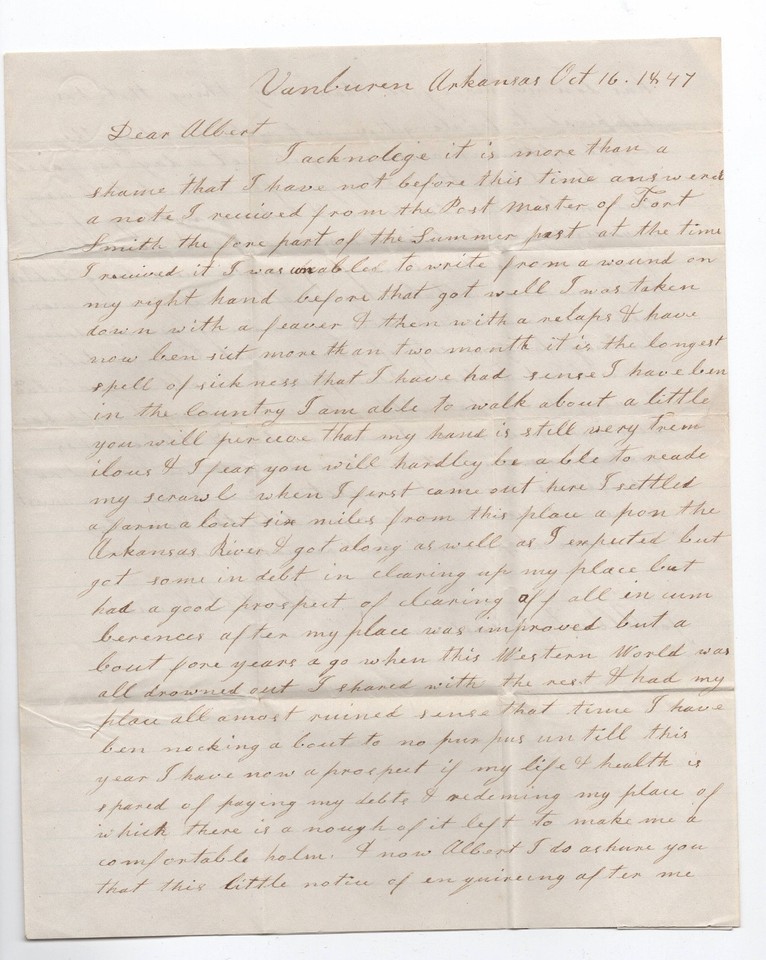 Vanburen Arkansas Oct 16. 1847
Dear Albert
I acknolege it is more than a
shame that I have not before this time answered
a note I received from the Post Master of Fort
Smith the fore part of the Summer past at the time
I received it I was unabled to write from a wound on
my right hand before that got well I was taken
down with a feaver & then with a relaps & have
now ben sict more than two month it is the longest
spell of sickness that I have had sense I have ben
in the Country I am able to walk about a little
you will perceve that my hand is still very trem
ilous & I fear you will hardley be able to reade
my scrawl when I first came out here I settled
a farm a bout six miles from this place a pon the
Arkansas River & got along as well as I expected but
got some in debt in clearing up my place but
had a good prospect of clearing off all in cum
berences after my place was improved but a
bout fore years a go when this Western World was
all drowned out I shared with the rest & had my
place all amost ruined sense that time I have
ben nocking a bout to no pur pus un till this
year I have now a prospect if my life & health is
spared of paying my debts & redeming my place of
which there is a nough of it left to make me a
comfortable holm & now Albert I do ashure you
that this little notice of en quireing after me